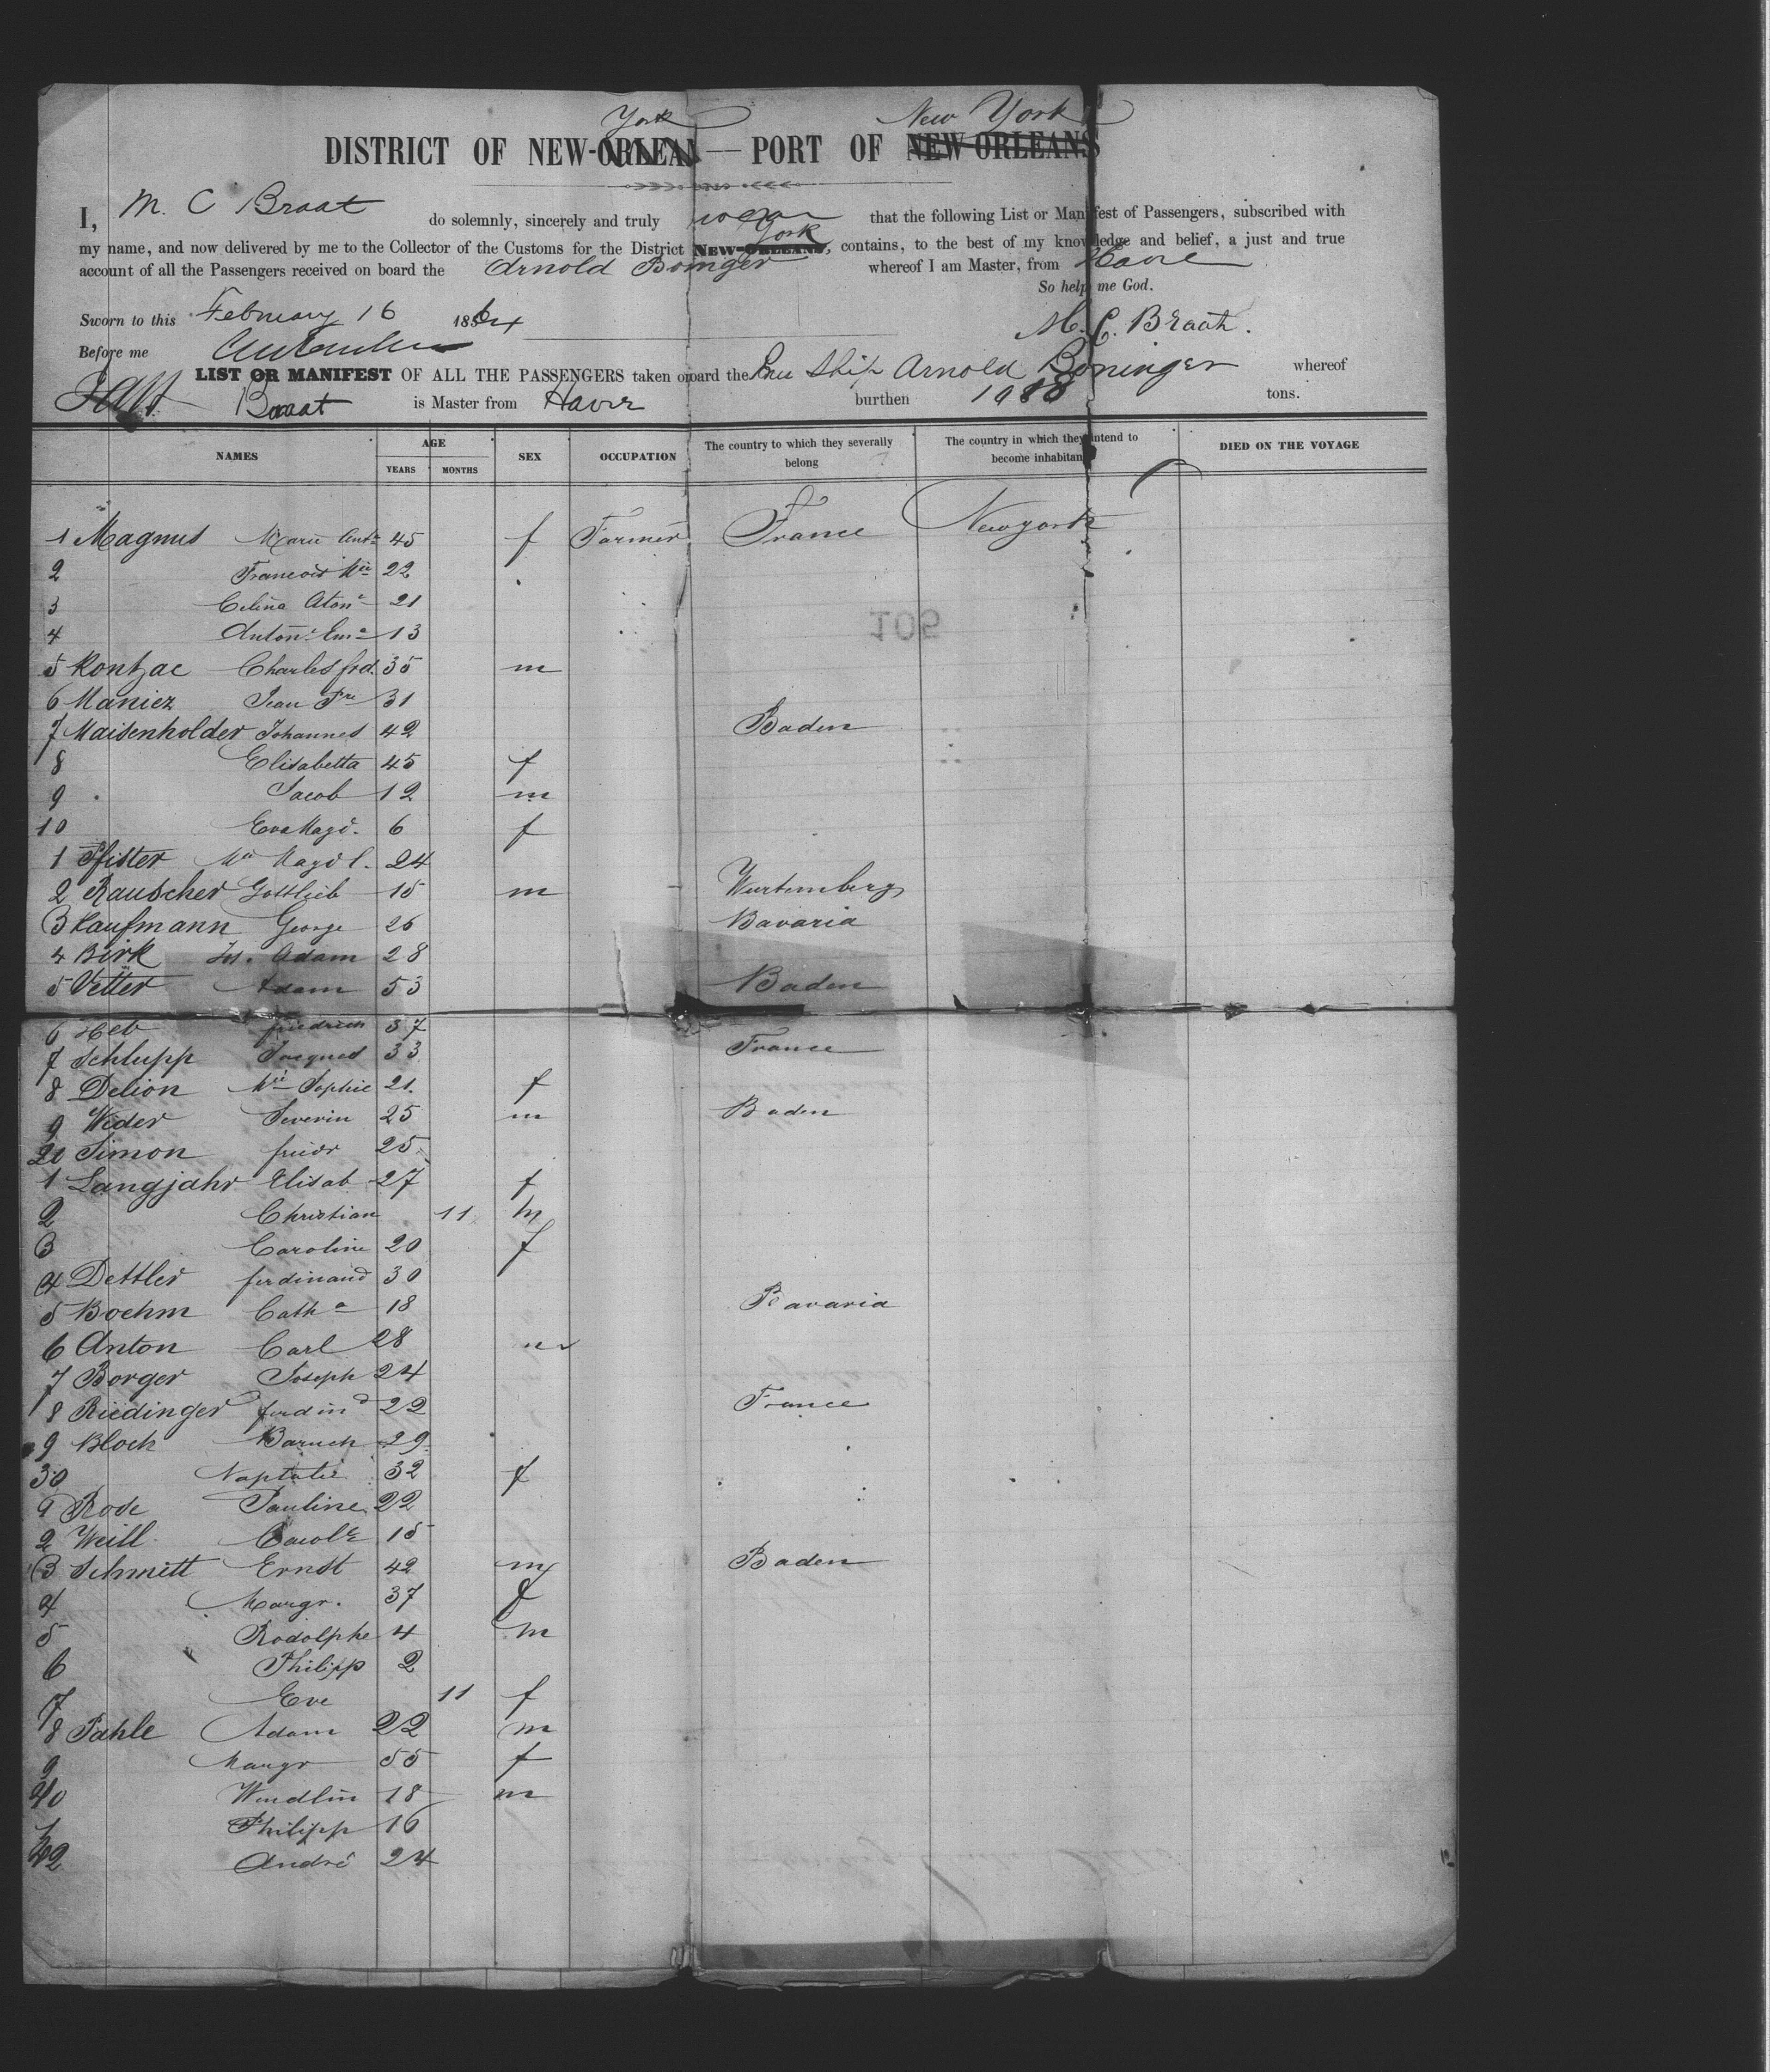 York New York
DISTRICT OF NEW-ORLEAN — PORT OF NEW ORLEANS
I, M. C Braat do solemnly, sincerely and truly swear that the following List or Manifest of Passengers, subscribed with
York
my name, and now delivered by me to the Collector of the Customs for the District NEW-ORLEANS, contains, to the best of my knowledge and belief, a just and true
account of all the Passengers received on board the Arnold Boninger whereof I am Master, from Havre
So help me God.
Sworn to this February 16 1864
M. C. Braat.
Before me
LIST OR MANIFEST OF ALL THE PASSENGERS taken on board the Ship Arnold Boninger whereof
Braat is Master from Havre burthen tons.
NAMES AGE SEX OCCUPATION The country to which they severally belong The country in which they intend to become inhabitan DIED ON THE VOYAGE
YEARS MONTHS
1 Magnus Marie Antne 45 f Farmer France Newyork
2 Francois Mie 22
3 Celina 21
105
4 13
5 Kontzac Charles frd. 35 m
6 Maniez Jean Pre 31
7 Maisenholder Johannes 42 Baden
8 Elisabetta 45 f
9 Jacob 12 m
10 Eva Magd. 6 f
1 Pfister Ma Magdl. 24
2 Rauscher Gottlieb 15 m Wurtemberg
3 Kaufmann George 26 Bavaria
4 Birk Js. Adam 28
5 Vetter Adam 53 Baden
6 Heb friedrich 37
7 Schlupp Jacques 33 France
8 Delion Mie Sophie 21. f
9 Weder Severin 25 m Baden
20 Simon friedr 25
1 Langjahr Elisab 27 f
2 Christian 11 m
3 Caroline 20 f
4 Dettler ferdinand 30
5 Boehm Catha 18 Bavaria
6 Anton Carl 28 m
7 Borger Joseph 24
8 Riedinger ferdind 22 France
9 Bloch Baruch 29
30 Naptalie 32 f
1 Rose Pauline 22
2 Weill Carole 15
3 Schmitt Ernst 42 m Baden
4 Margr. 37 f
5 Rodolphe 4 m
6 Philipp 2
7 Eve 11 f
8 Pahle Adam 22 m
9 Margr 55 f
40 Wendlin 18 m
1 Philipp 16
42 André 24